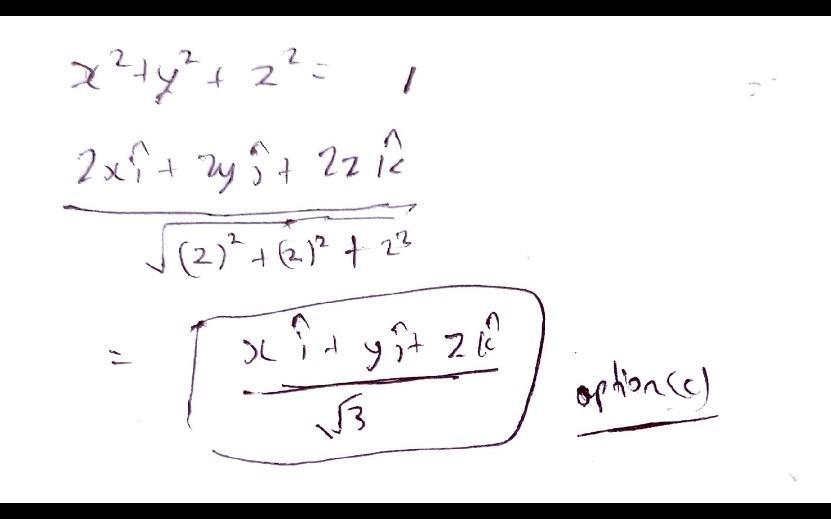 x²+y²+z²= 1
2xî + 2yĵ + 2z k̂
√(2)²+(2)²+2²
= xî + yĵ+ zk̂
√3
option(c)